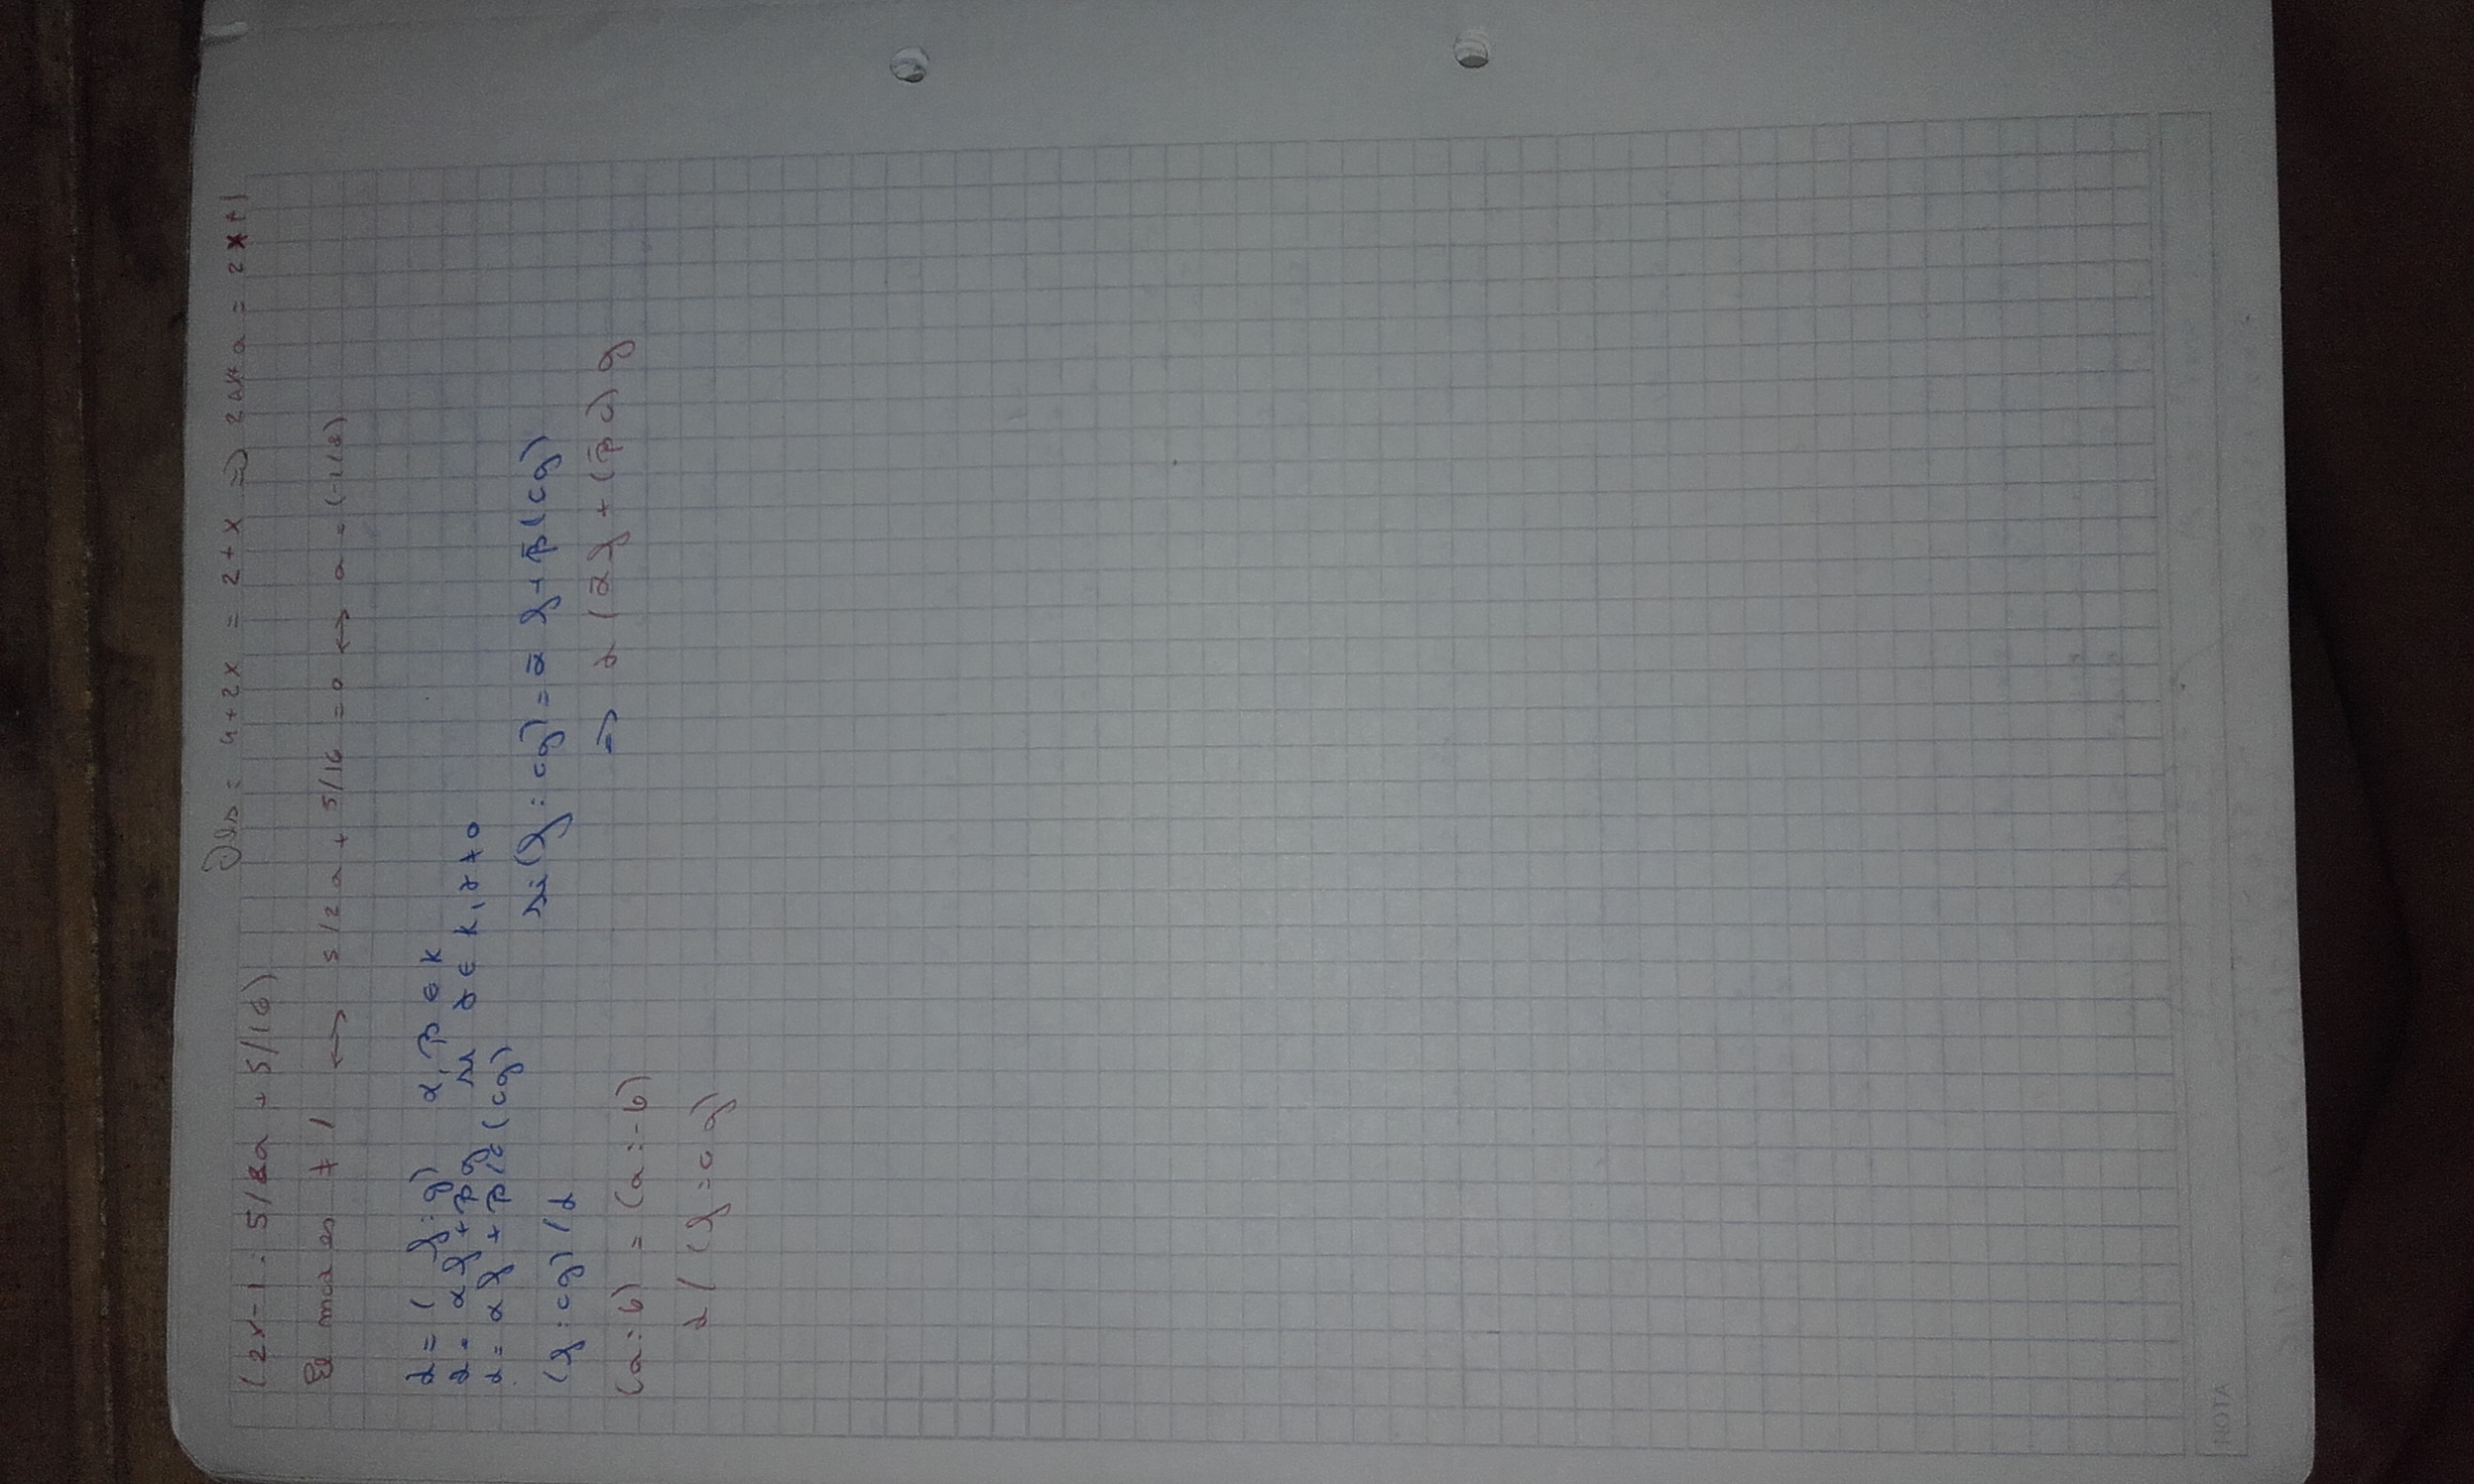 Obs = 4+2x = 2+x => 2ax+a = 2x+1
(2x-1 : 5/8a + 5/16)
El mcd es ≠ 1 <-> 5/2 a + 5/16 = 0 <-> a = (-1/8)
d = ( f:g) α, β ∈ k
d = αf + βg si γ ∈ k, γ ≠ 0
d = αf + β/c (cg)
si (f : cg) = ᾱ f + β̄ (cg)
(f : cg) / d
=> d / ᾱf + (β̄ c) g
(a : b) = (a : -b)
d / (f : cg)
NOTA